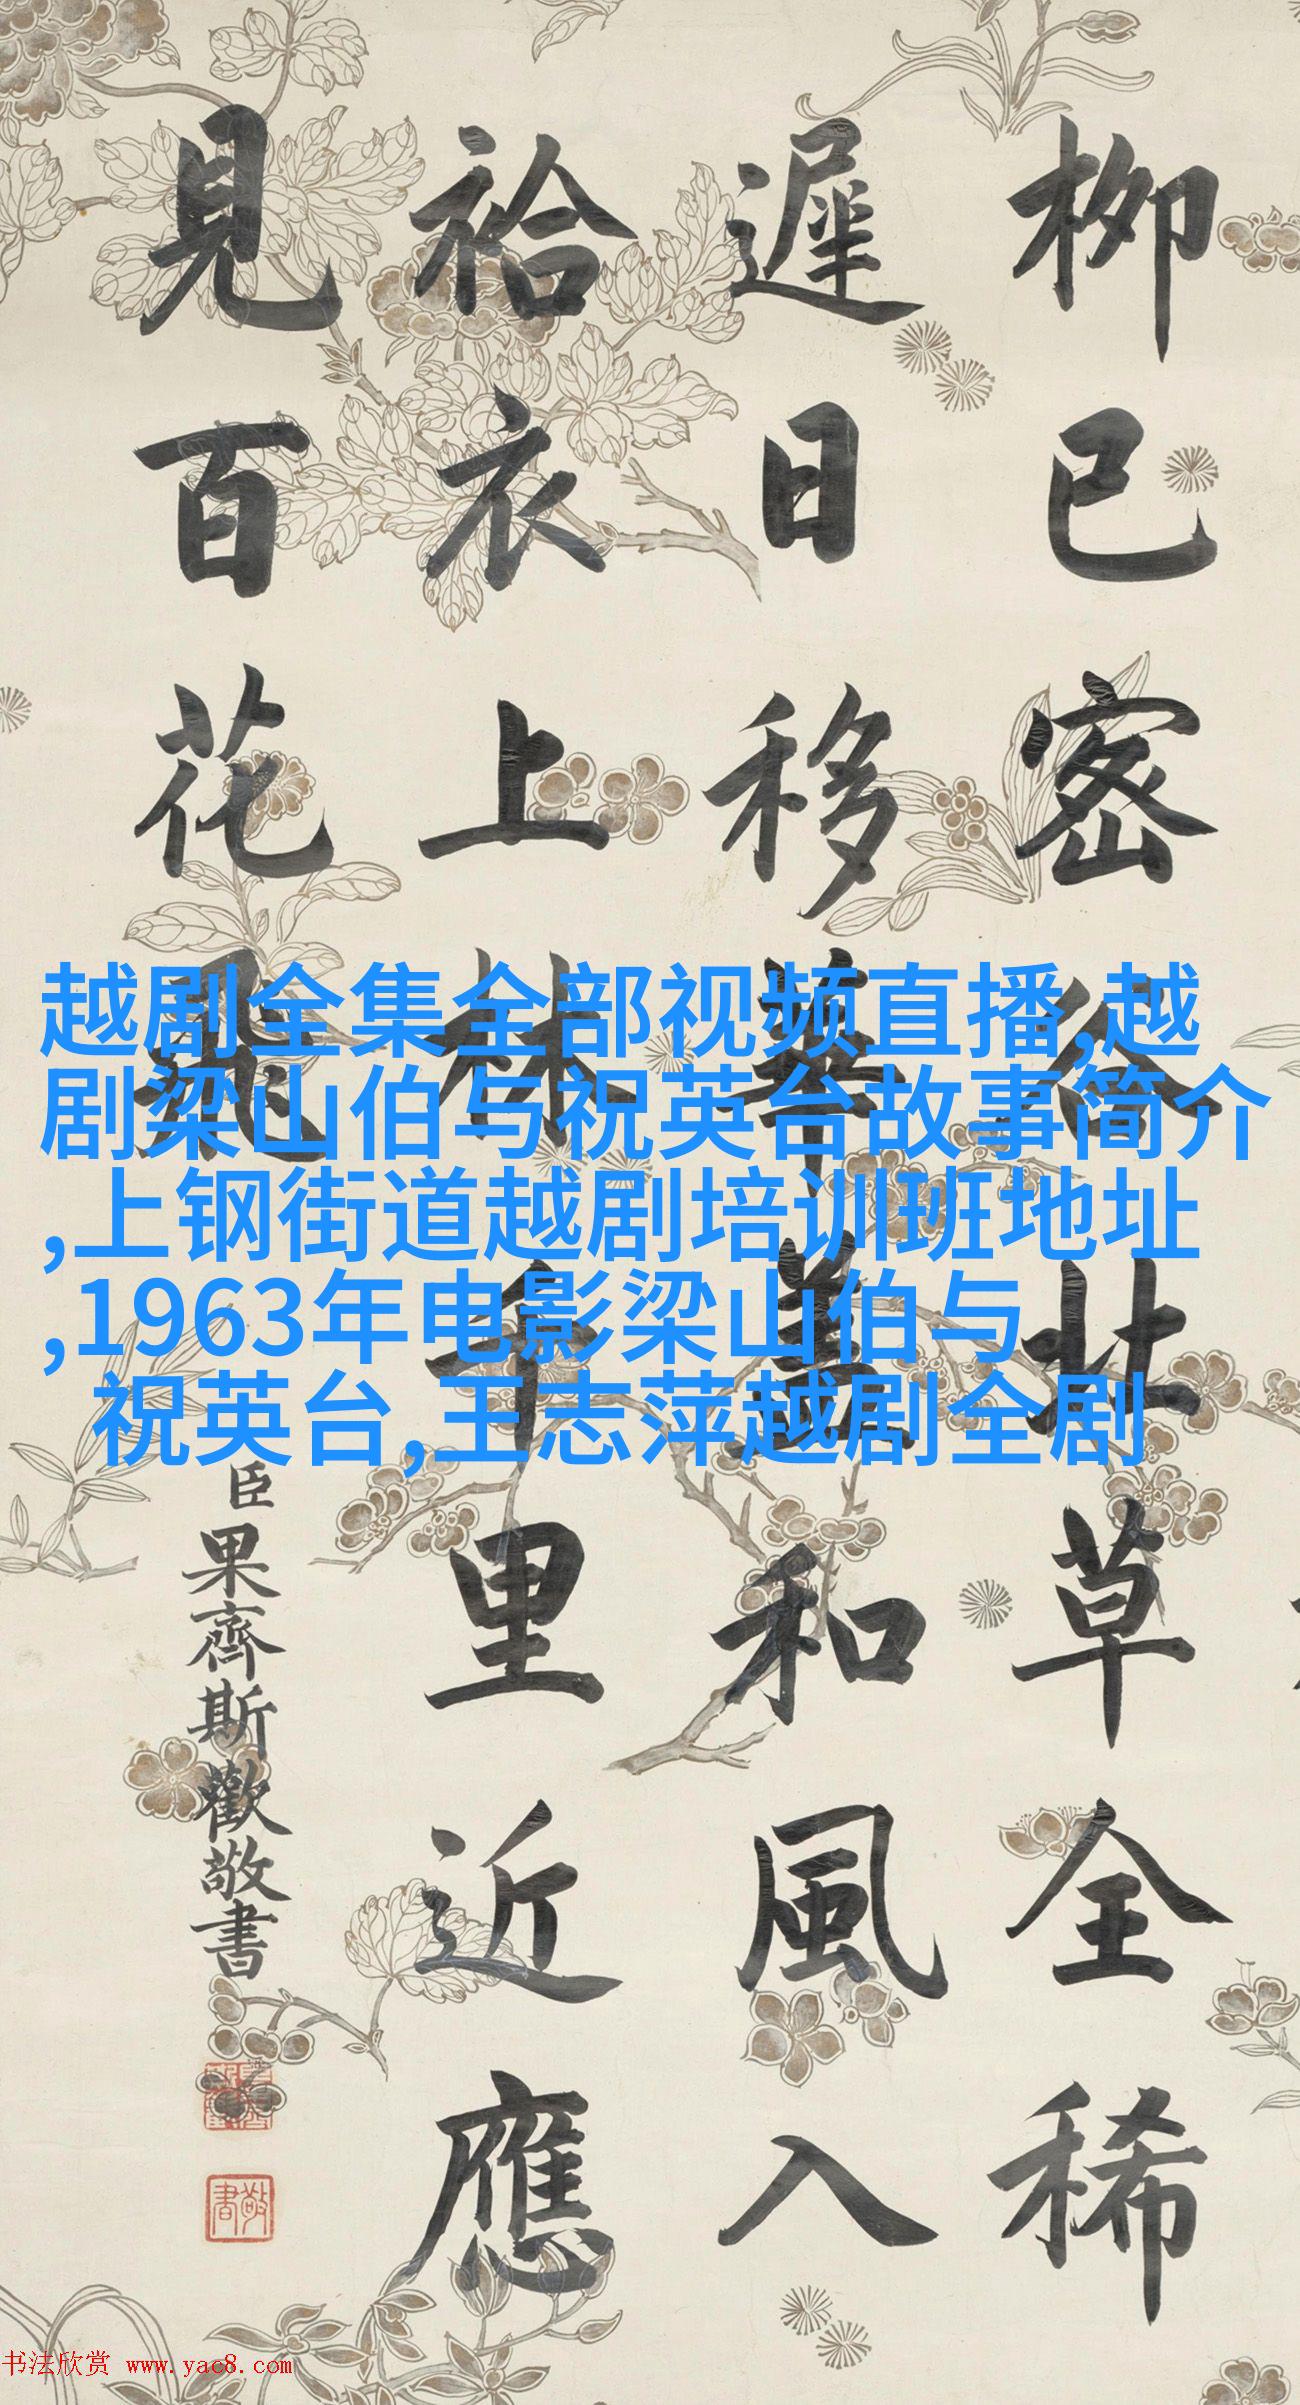 柳已密谷北草全稀
遲日移華蓋和風入
袷衣上林千里近應
見百花飛
臣果齊斯歡敬書
敬書
越剧全集全部视频直播,越
剧梁山伯与祝英台故事简介
,上钢街道越剧培训班地址
,1963年电影梁山伯与
祝英台,王志萍越剧全剧
书法欣赏 www.yac8.com